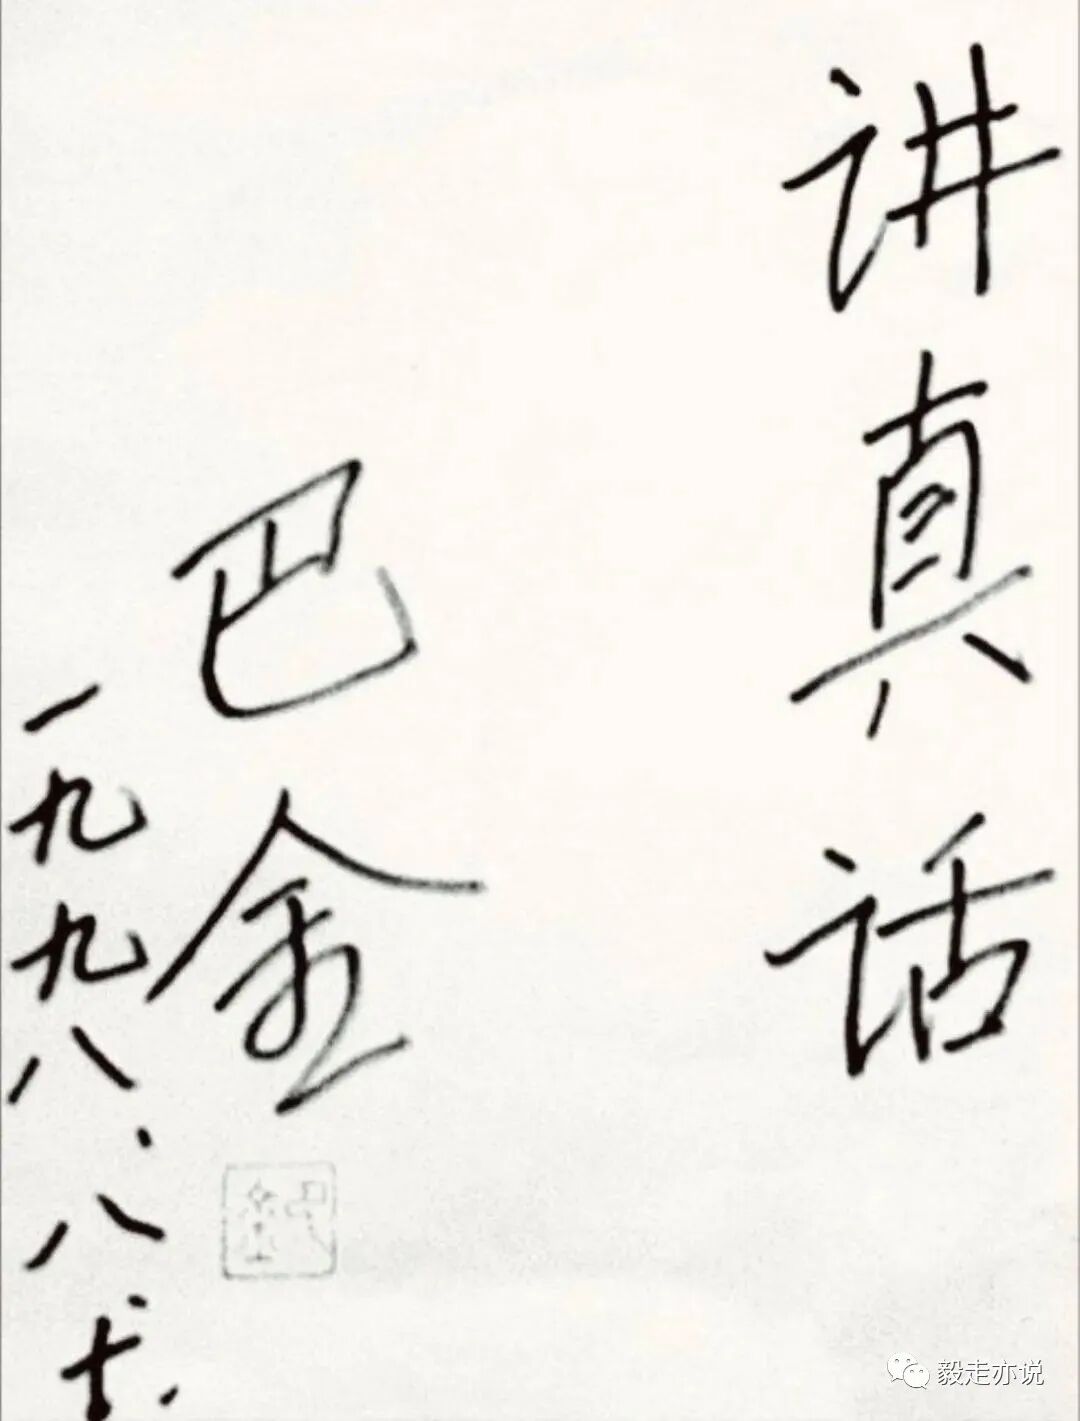 讲真话
巴金
一九九八、八、十、
毅走亦说